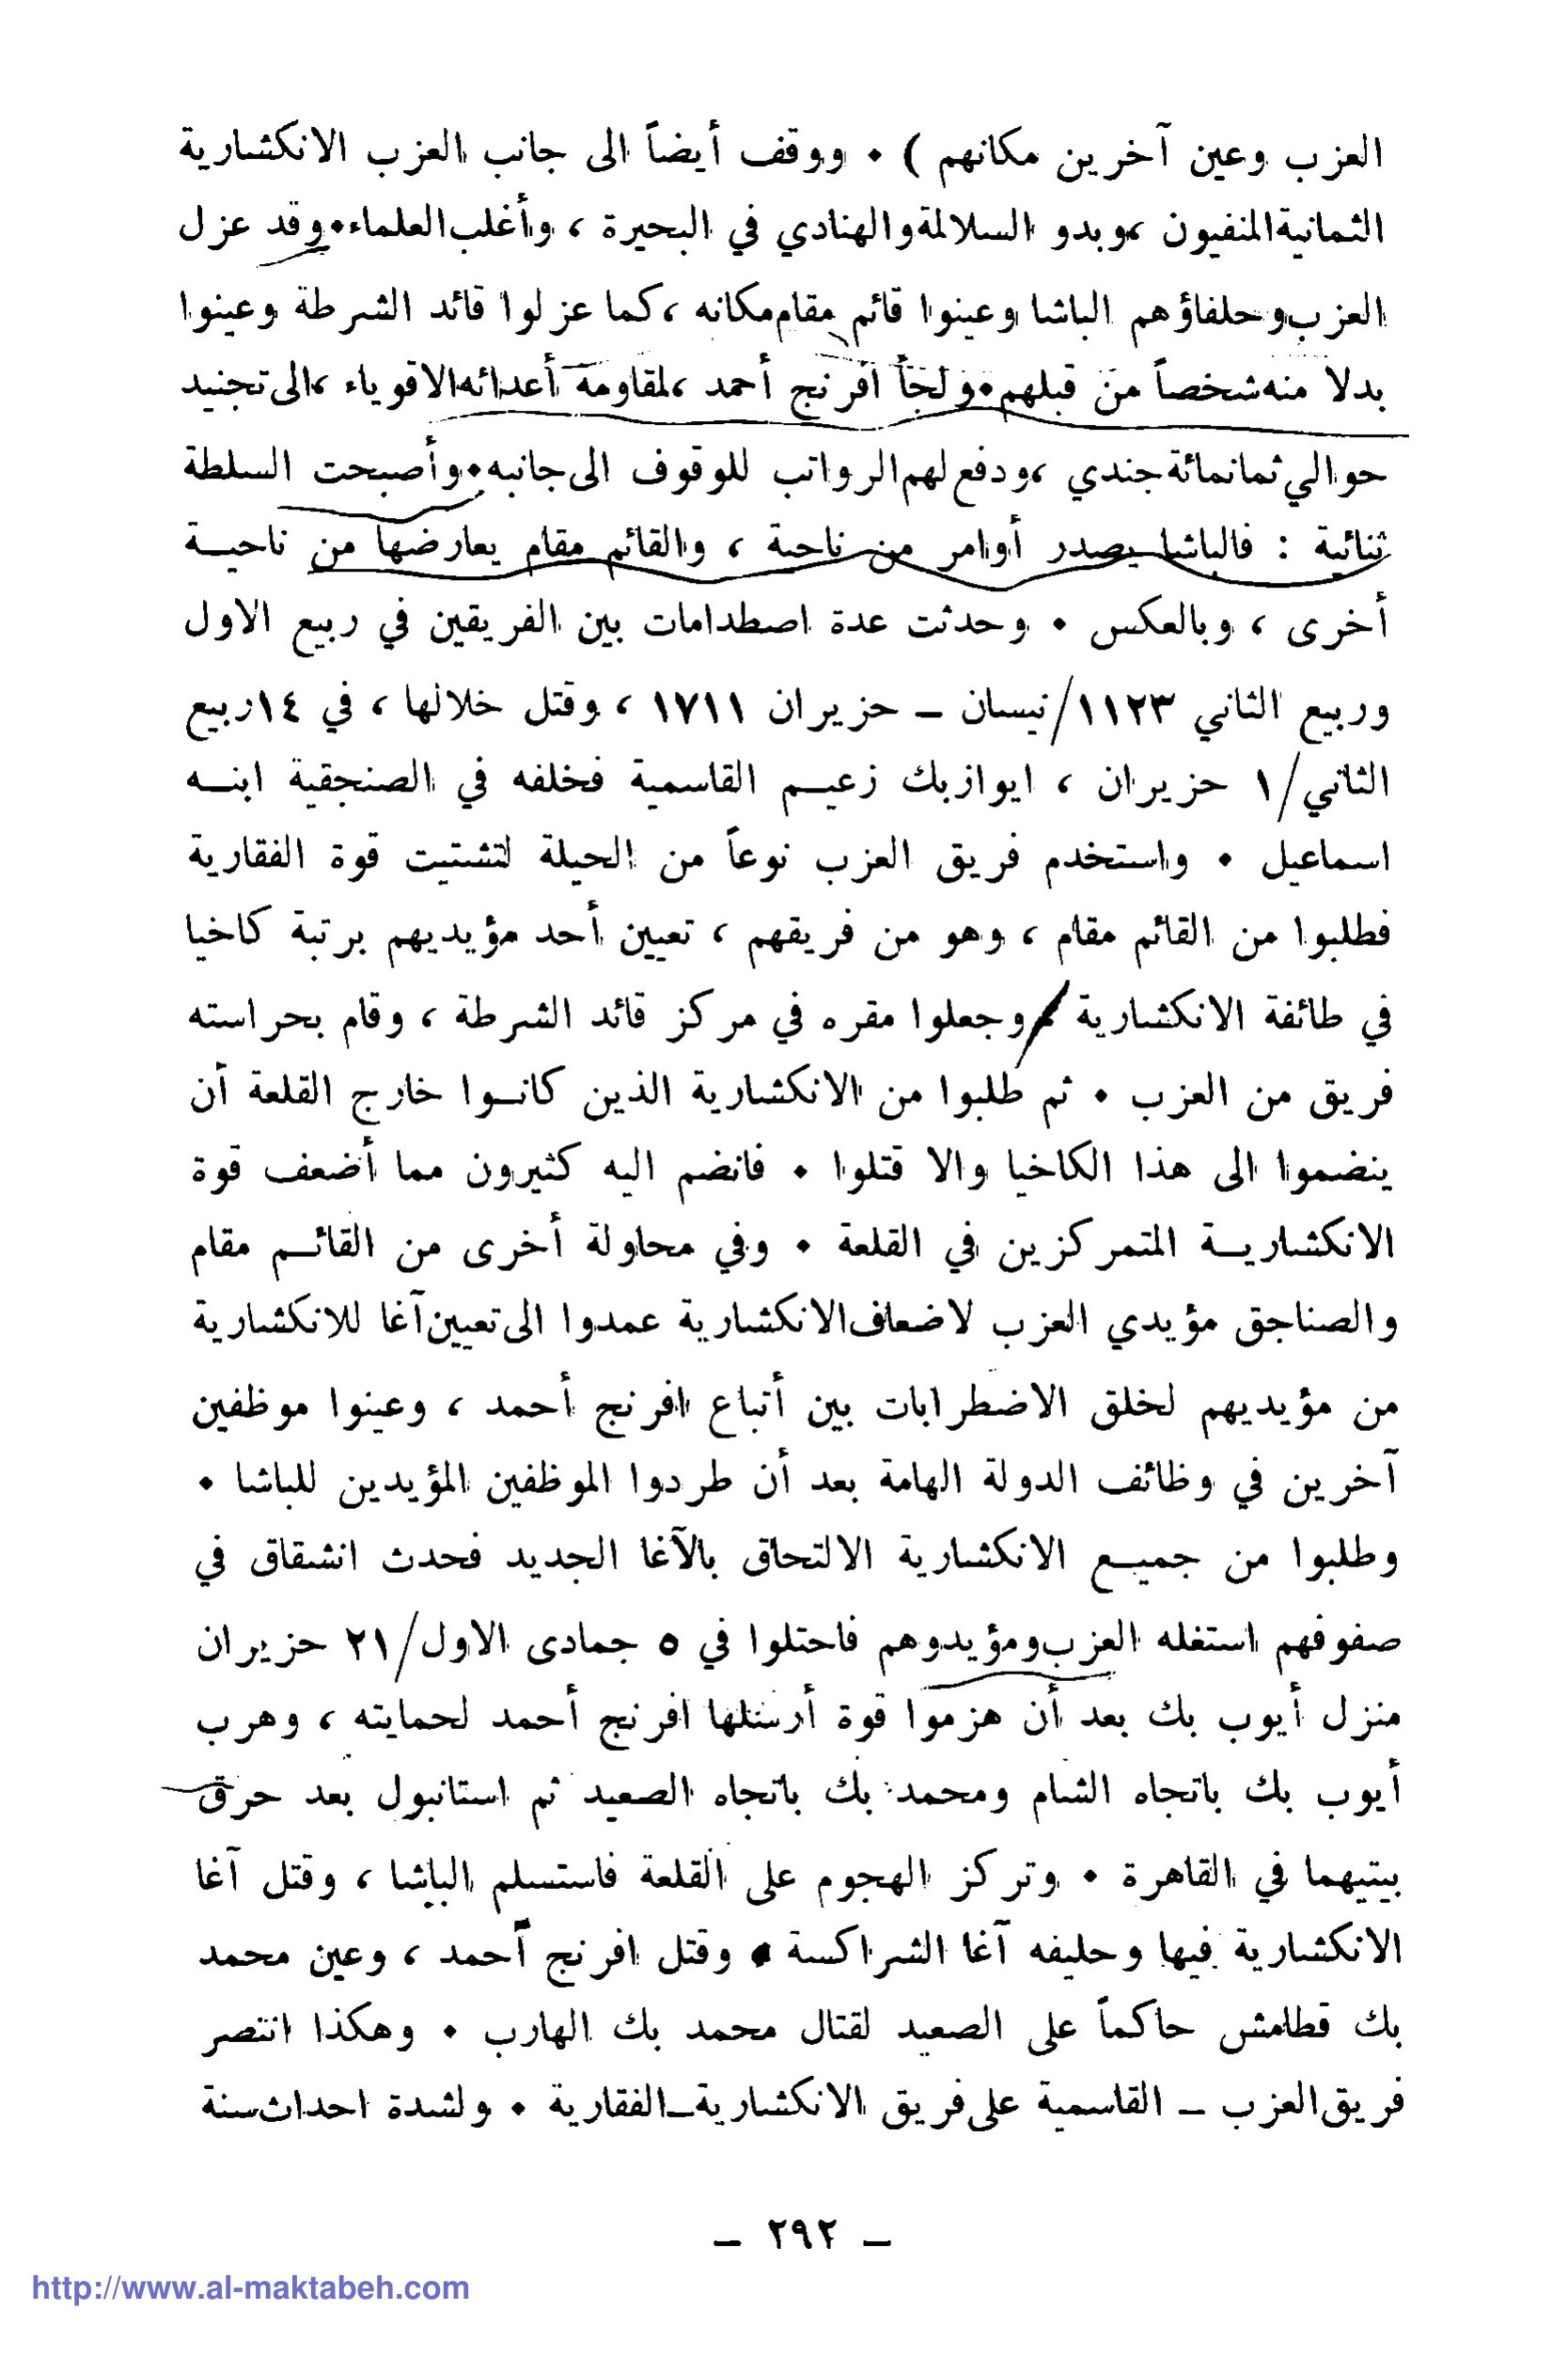 العزب وعين آخرين مكانهم ) ٠ ووقف أيضاً الى جانب العزب الانكشارية
الثمانية المنفيون ، وبدو السلالمة والهنادي في البحيرة ، وأغلب العلماء ٠ وقد عزل
العزب وحلفاؤهم الباشا وعينوا قائم مقام مكانه ، كما عزلوا قائد الشرطة وعينوا
بدلا منه شخصاً من قبلهم ٠ ولجأ افرنج أحمد ، لمقاومة أعدائه الاقوياء ، الى تجنيد
حوالي ثمانمائة جندي ، ودفع لهم الرواتب للوقوف الى جانبه ٠ وأصبحت السلطة
ثنائية : فالباشا يصدر أوامر من ناحية ، والقائم مقام يعارضها من ناحيــة
أخرى ، وبالعكس ٠ وحدثت عدة اصطدامات بين الفريقين في ربيع الاول
وربيع الثاني ١١٢٣/نيسان – حزيران ١٧١١ ، وقتل خلالها ، في ١٤ ربيع
الثاني/١ حزيران ، ايواز بك زعيــم القاسمية فخلفه في الصنجقية ابنــه
اسماعيل ٠ واستخدم فريق العزب نوعاً من الحيلة لتشتيت قوة الفقارية
فطلبوا من القائم مقام ، وهو من فريقهم ، تعيين أحد مؤيديهم برتبة كاخيا
في طائفة الانكشارية ، وجعلوا مقره في مركز قائد الشرطة ، وقام بحراسته
فريق من العزب ٠ ثم طلبوا من الانكشارية الذين كانــوا خارج القلعة أن
ينضموا الى هذا الكاخيا والا قتلوا ٠ فانضم اليه كثيرون مما أضعف قوة
الانكشاريــة المتمركزين في القلعة ٠ وفي محاولة أخرى من القائــم مقام
والصناجق مؤيدي العزب لاضعاف الانكشارية عمدوا الى تعيين آغا للانكشارية
من مؤيديهم لخلق الاضطرابات بين أتباع افرنج أحمد ، وعينوا موظفين
آخرين في وظائف الدولة الهامة بعد أن طردوا الموظفين المؤيدين للباشا ٠
وطلبوا من جميــع الانكشارية الالتحاق بالآغا الجديد فحدث انشقاق في
صفوفهم استغله العزب ومؤيدوهم فاحتلوا في ٥ جمادى الاول/٢١ حزيران
منزل أيوب بك بعد أن هزموا قوة أرسلها افرنج أحمد لحمايته ، وهرب
أيوب بك باتجاه الشام ومحمد بك باتجاه الصعيد ثم استانبول بعد حرق
بيتيهما في القاهرة ٠ وتركز الهجوم على القلعة فاستسلم الباشا ، وقتل آغا
الانكشارية فيها وحليفه آغا الشراكسة ٠ وقتل افرنج أحمد ، وعين محمد
بك قطامش حاكماً على الصعيد لقتال محمد بك الهارب ٠ وهكذا انتصر
فريق العزب – القاسمية على فريق الانكشارية–الفقارية ٠ ولشدة احداث سنة
– ٢٩٢ –
http://www.al-maktabeh.com